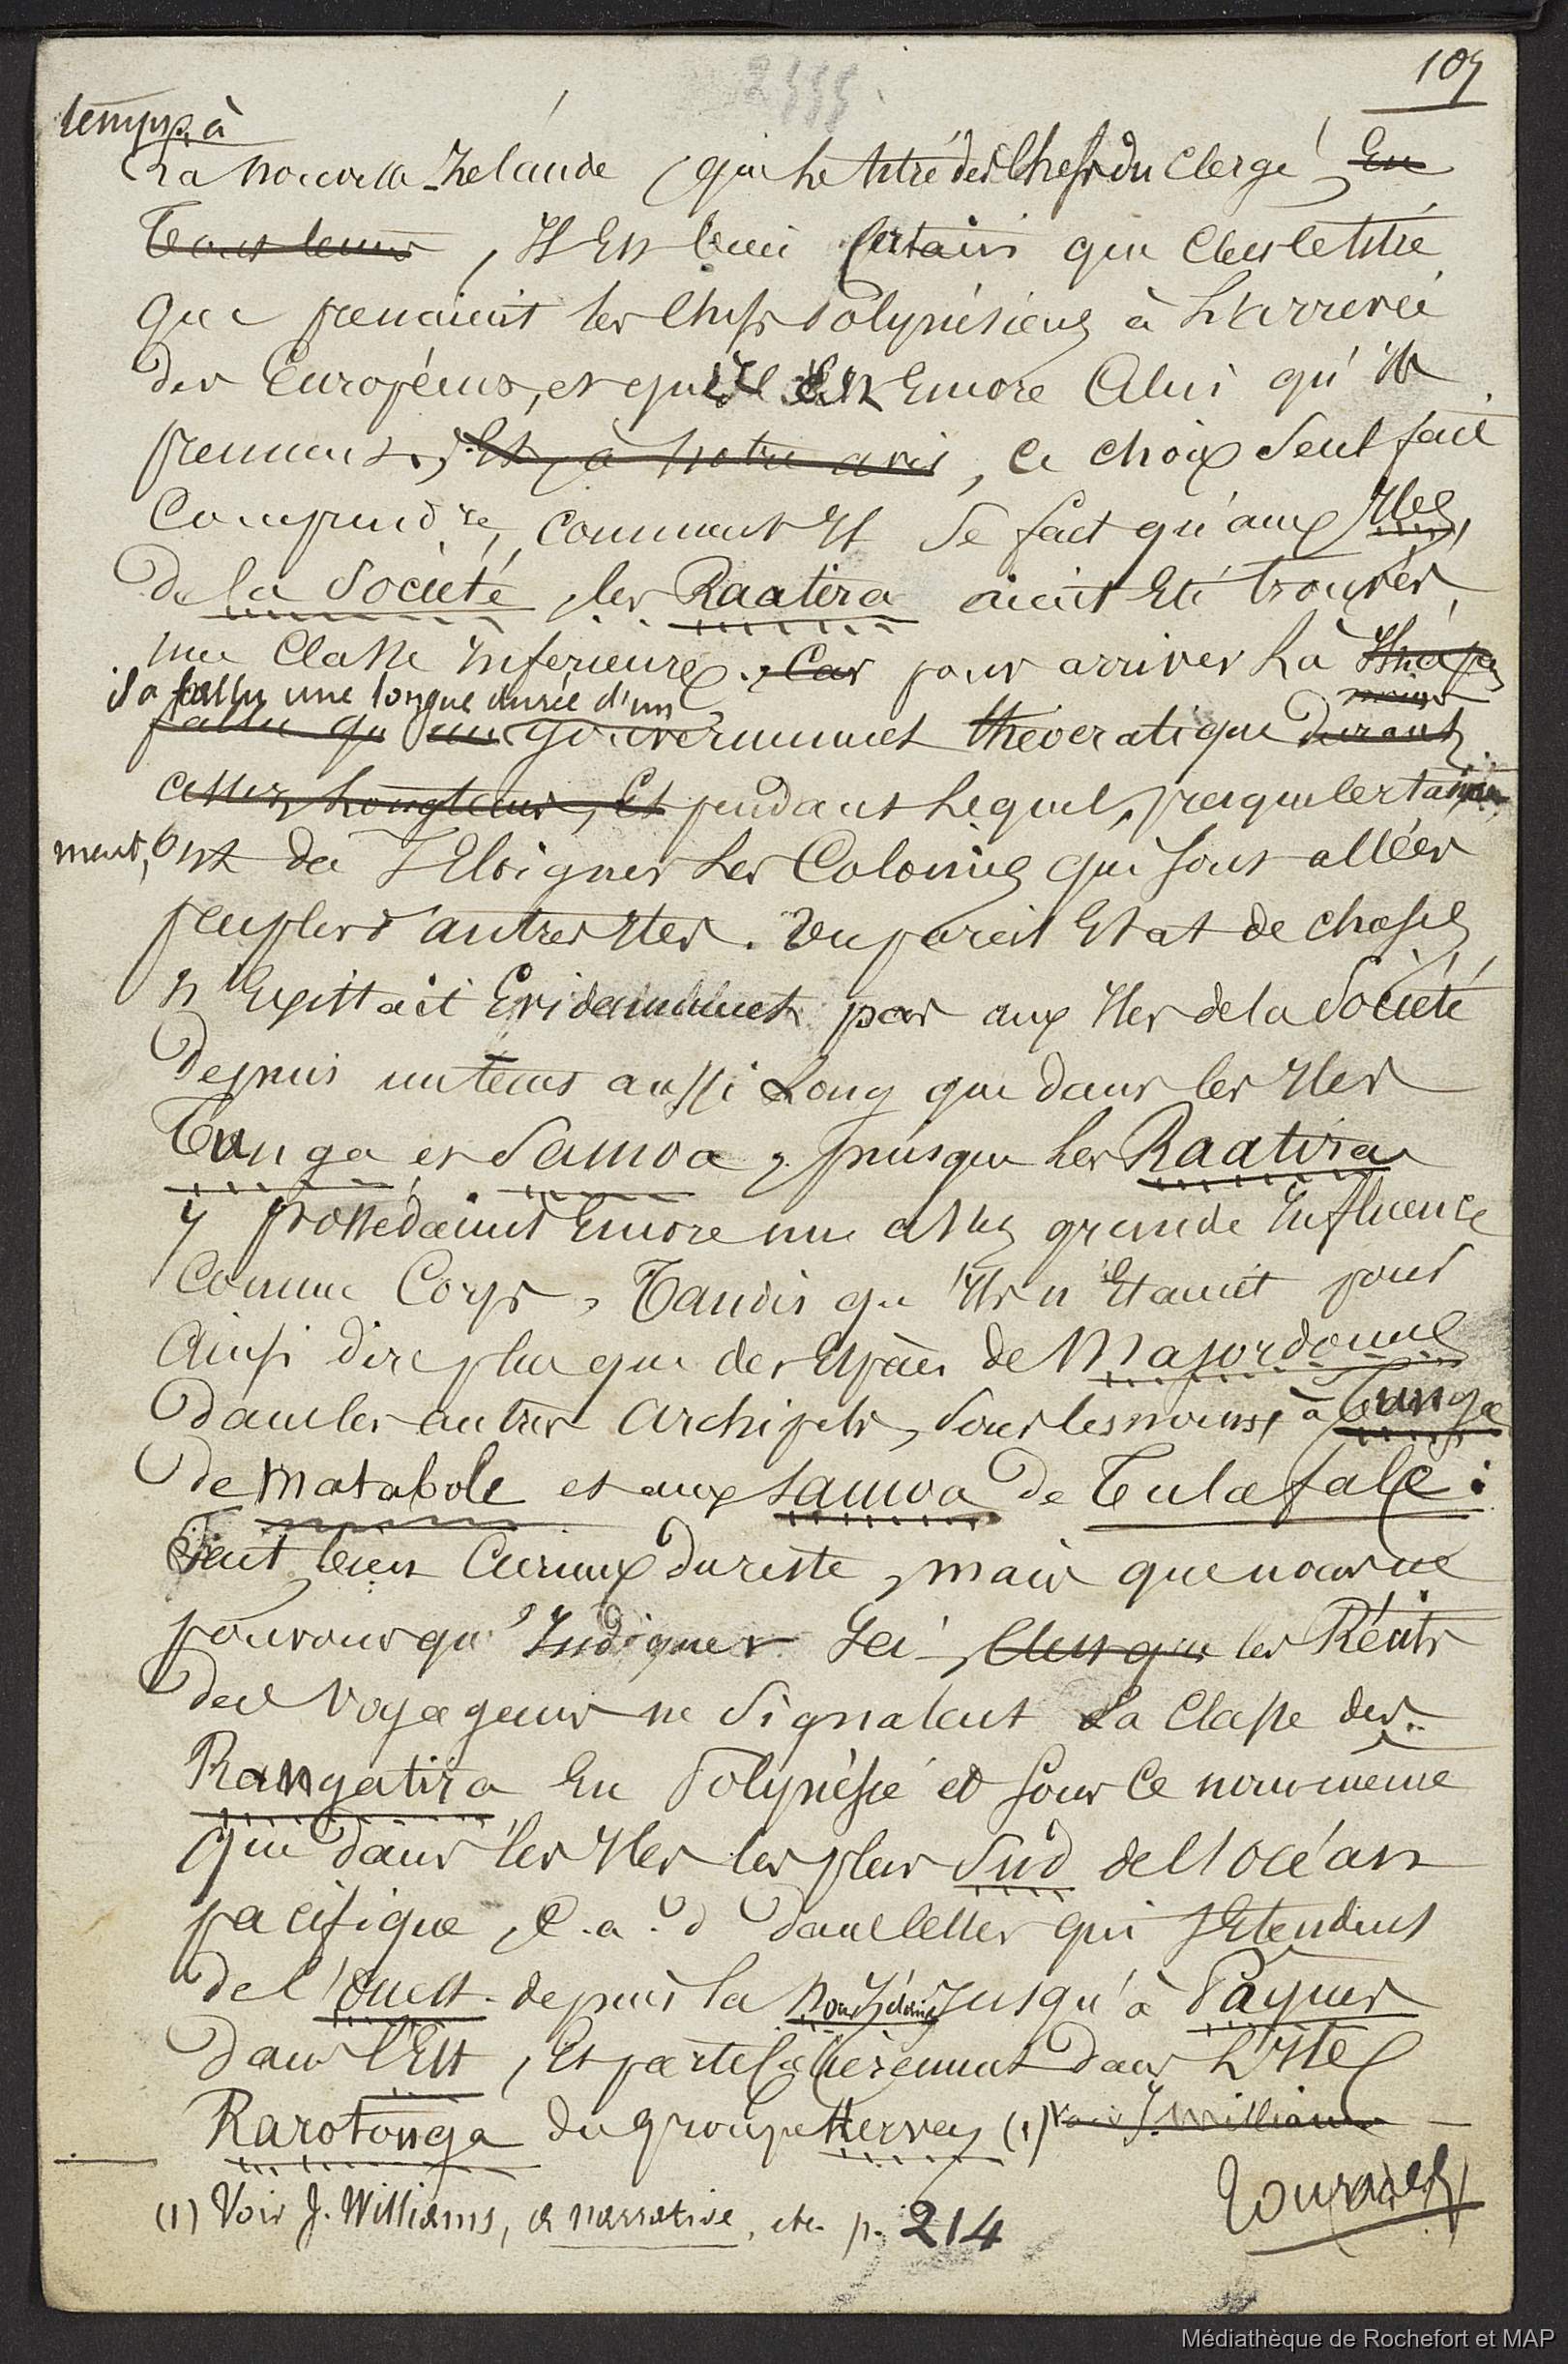 109
temps à
la nouvelle Zelande, que le titre des Chefs du Clergé, En
Tous tems, Il Est bien Certain que C'est le titre
que prenaient les Chefs Polynésiens à L'Arrivée
des Européens, et qu'il Est Encore Celui qu'ils
prennent. Et, à notre avis, Ce choix Seul fait
Comprendre, Comment Il Se fait qu'aux Iles
De la Société, les Raatira aient Eté trouvés
une Classe Inférieure. Car pour arriver là Il n'a pas
il a fallu une longue durée d'un
fallu qu' un gouvernement théocratique durant
assez Longtems, Et pendant Lequel, presque certaine
ment, ont du S'Eloigner Les Colonies qui sont allées
peupler d'autres Iles. Un pareil Etat de choses
n'Existait Evidemment pas aux Iles de la Société
Depuis un tems aussi Long que dans les Iles
Tunga et Samoa, puisque Les Raatira
y possédaient Encore une assez grande Influence
Comme Corps, Tandis qu'Ils n'Etaient pour
Ainsi dire plus que des Espèces de Majordomes
Dans les autres Archipels, Sous les noms, à Tunga
de Matabole et aux Samoa de Tulafale :
Fait bien Curieux du reste, mais que nous ne
pouvons qu'Indiquer Ici, C'est que les Récits
des Voyageurs ne Signalent La Classe des
Rangatira En Polynésie et sous Ce nom même
que dans les Iles les plus Sud de l'océan
pacifique, C.a.d Dans Celles qui S'Etendent
de l'ouest depuis la Nouv Zélande Jusqu'à Pâques
dans l'Est, Et particulièrement Dans L'Ile
Rarotonga du groupe Hervey (1) Voir J. Williams
(1) Voir J. Williams, a narrative, etc. p. 214
Tournez
Médiathèque de Rochefort et MAP